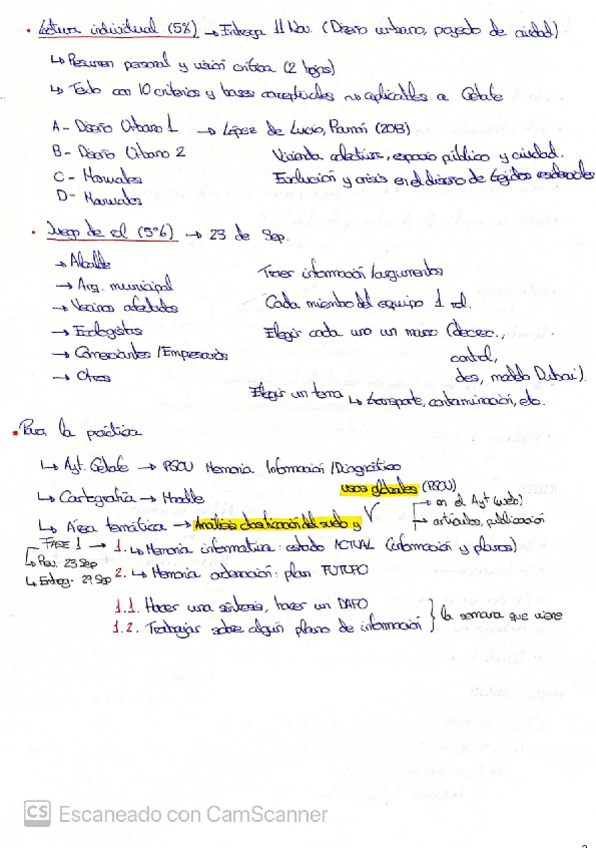 • Lectura individual (5%) → Entrega 11 Nov. (Diseño urbano, proyecto de ciudad)
↳ Resumen personal y visión crítica (2 hojas)
↳ Texto con 10 criterios y bases conceptuales no aplicables a Getafe
A - Diseño Urbano 1 → López de Lucio, Ramón (2013)
B - Diseño Urbano 2 Vivienda colectiva, espacio público y ciudad.
C - Manuales Evolución y crisis en el diseño de tejidos residenciales
D - Manuales
• Juego de rol (5%) → 23 de Sep.
→ Alcalde
Traer información/argumentos
→ Arq. municipal
→ Vecinos afectados Cada miembro del equipo 1 rol.
→ Ecologistas Elegir cada uno un marco (decrec.,
→ Comerciantes / Empresarios control,
→ Otros des, modelo Dubai).
Elegir un tema ↳ transporte, contaminación, etc.
• Para la práctica
↳ Ayt. Getafe → PGOU Memoria Información/Diagnóstico
usos globales (PGOU)
↳ Cartografía → Moodle → en el Ayt (web)
↳ Área temática → Análisis clasificación del suelo y ✓ → artículos, publicación
FASE 1 → 1. ↳ Memoria informativa: estado ACTUAL (información y planos)
↳ Rev. 23 Sep
↳ Entreg. 29 Sep 2. ↳ Memoria ordenación: plan FUTURO
1.1. Hacer una síntesis, hacer un DAFO
1.2. Trabajar sobre algún plano de información } la semana que viene
CS Escaneado con CamScanner